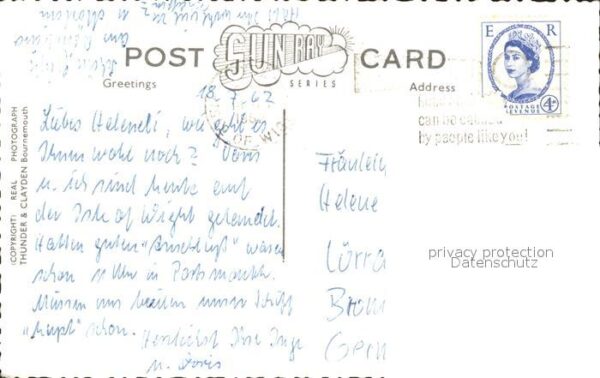 POST CARD
SUN RAY
SERIES
Greetings
Address
E R
POSTAGE
REVENUE
4D
can be
by people like you!
OF WI
(COPYRIGHT) REAL PHOTOGRAPH
THUNDER & CLAYDEN Bournemouth
18.7.62
Liebes Heleneli, wie geht es
Ihnen wohl noch? Doris
u. ich sind heute auf
der Isle of Wight gelandet.
Hatten guten "Anschluß" waren
schon 11 Uhr in Portsmouth.
Müssen uns beeilen unser Schiff
"hupt" schon.
Herzlichst Ihre Inge
u. Doris
Fräulein
Helene
Lörra
Brom
Germ
privacy protection
Datenschutz